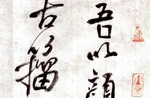 吾以顏
古籀